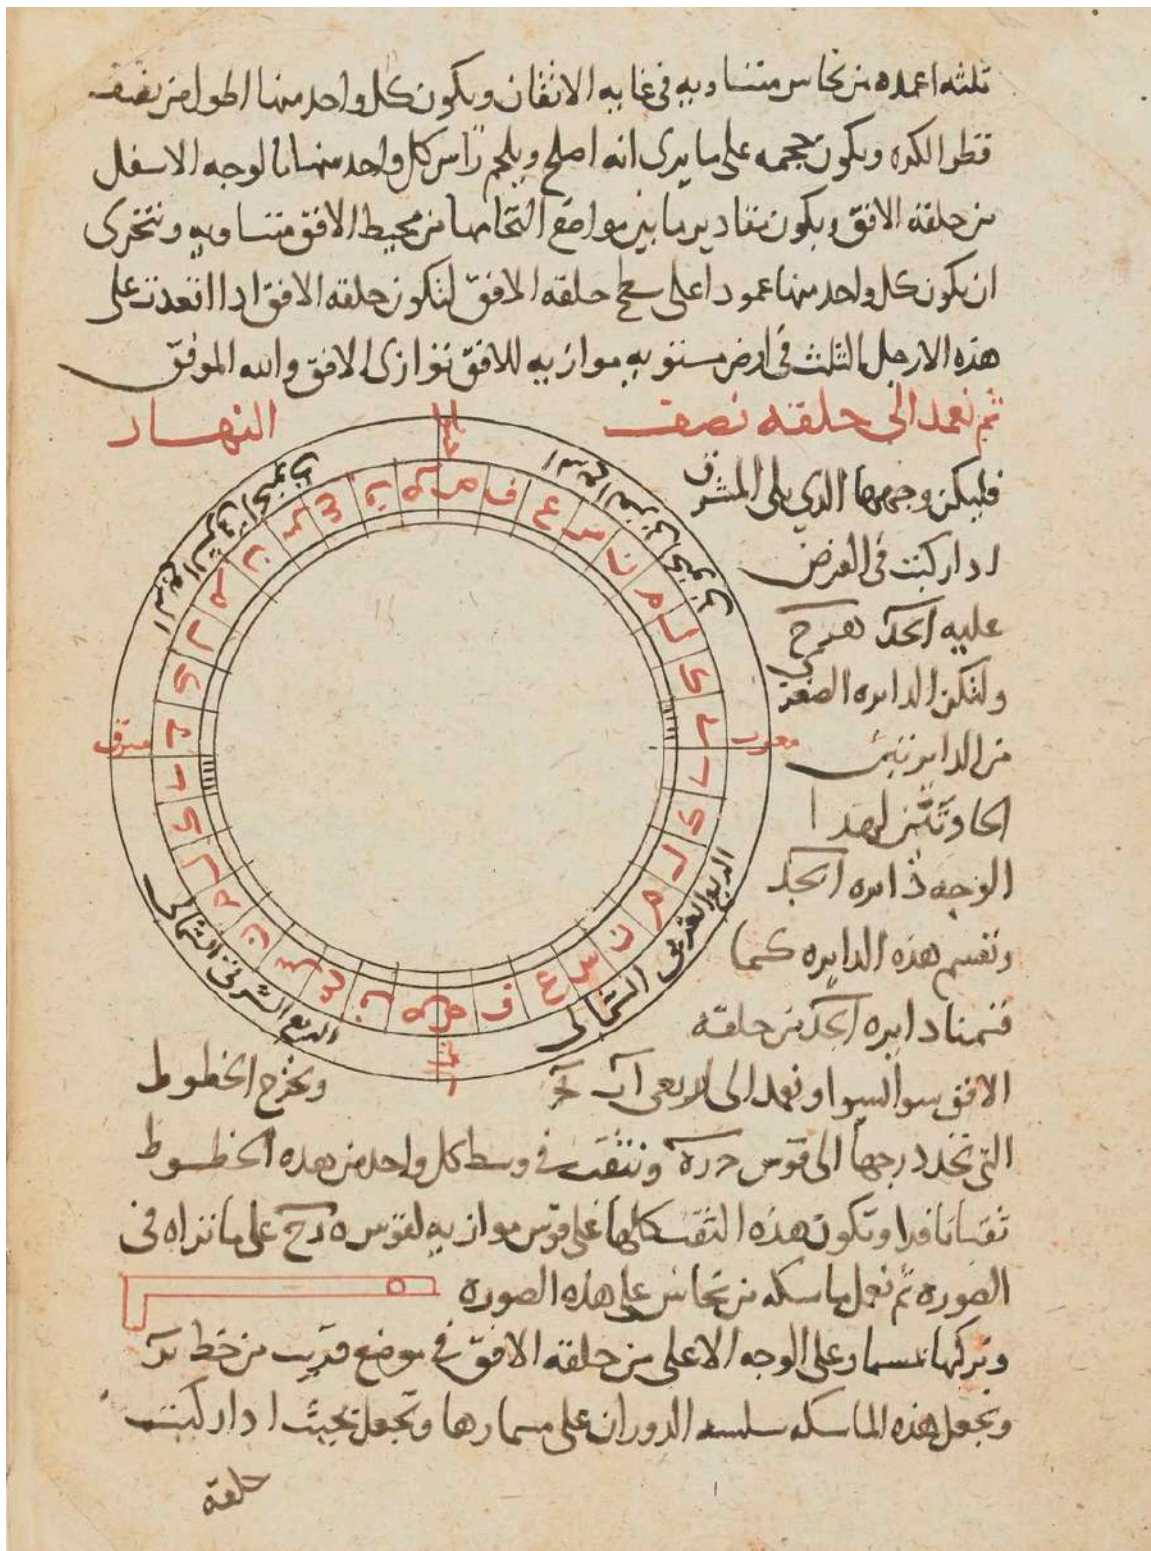 ثلثه اعمده من نحاس متساويه في غايه الاتقان ويكون كل واحد منها اطول من نصف
قطر الكره ويكون حجمه على ما يرى انه اصلح ويلحم راس كل واحد منها بالوجه الاسفل
من حلقة الافق ويكون مقادير ما بين مواضع التحامها من محيط الافق متساويه ونتحرى
ان يكون كل واحد منها عمودا على سطح حلقه الافق لتكون حلقه الافق اذا اقعدت على
هذه الارجل الثلث في ارض مستويه موازيه للافق توازى الافق والله الموفق
ثم نعمد الى حلقة نصف النهار
فليكن وجهها الذي يلى المشرق
اذا ركبت في العرض
عليه ابجد هزح
ولتكن الدايره الصغرى
من الدايرتين
الحاوتين لهذا
الوجه دايره ابجد
ونقسم هذه الدايره كما
قسمنا دايره ابجد من حلقة
الافق سوا سوا ونعمد الى
ونخرج الخطوط
التي تحد درجها الى قوس ونثقب في وسط كل واحد من هذه الخطوط
ثقبا نافذا وتكون هذه الثقب كلها على قوس موازيه لقوس على ما نراه في
الصوره ثم نعمل ماسكه من نحاس على هذه الصوره
ونركبها بمسمار على الوجه الاعلى من حلقة الافق في موضع قريب من خط
ونجعل هذه الماسكه سلسه الدوران على مسمارها ونجعل بحيث اذا ركبت
حلقة
مشرق
مغرب
الربع الشرقي الجنوبي
الربع الغربي الجنوبي
الربع الشرقي الشمالي
الربع الغربي الشمالي